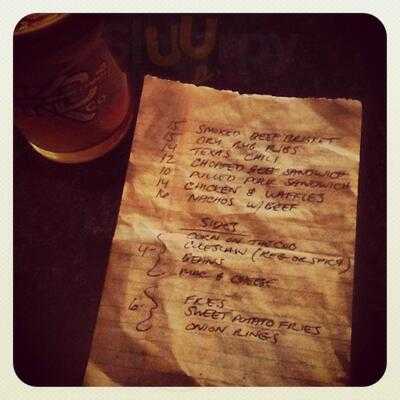 15 SMOKED BEEF BRISKET
15 DRY RUB RIBS
14 TEXAS CHILI
12 CHOPPED BEEF SANDWICH
10 PULLED PORK SANDWICH
14 CHICKEN & WAFFLES
16 NACHOS W/BEEF
SIDES
CORN ON THE COB
4- COLESLAW (REG OR SPICY)
BEANS
MAC & CHEESE
FRIES
6- SWEET POTATO FRIES
ONION RINGS